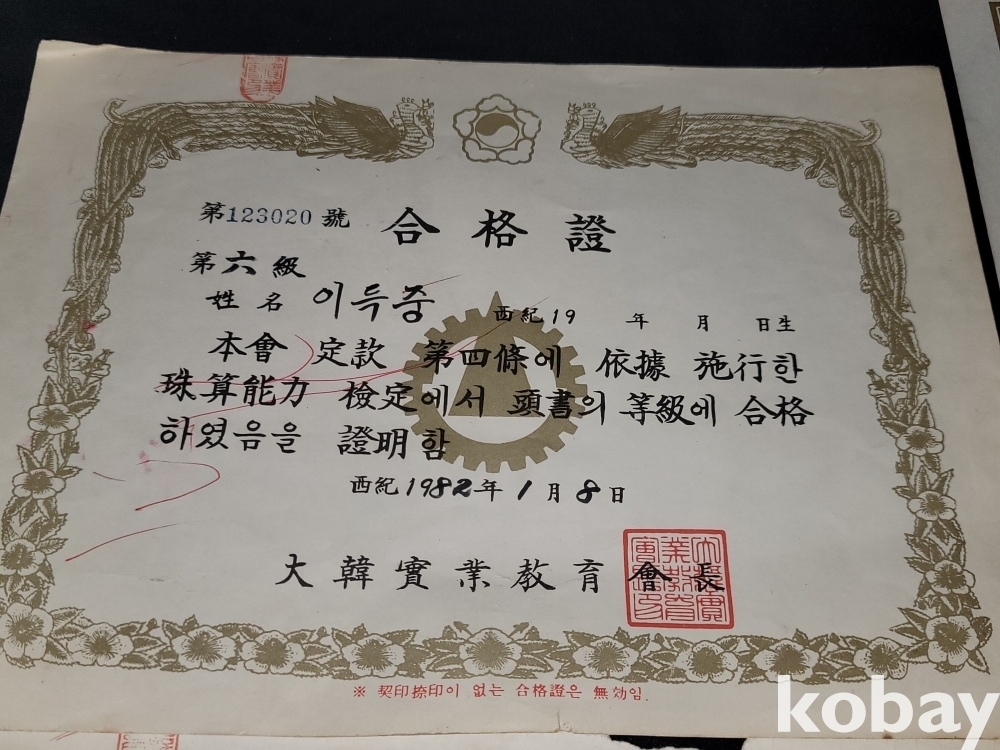 第123020號 合格證
第六級
姓名 이득중 西紀19 年 月 日生
本會 定款 第四條에 依據 施行한
珠算能力 檢定에서 頭書의 等級에 合格
하였음을 證明함
西紀1982年1月8日
大韓實業敎育會長
※ 契印捺印이 없는 合格證은 無効임.
kobay